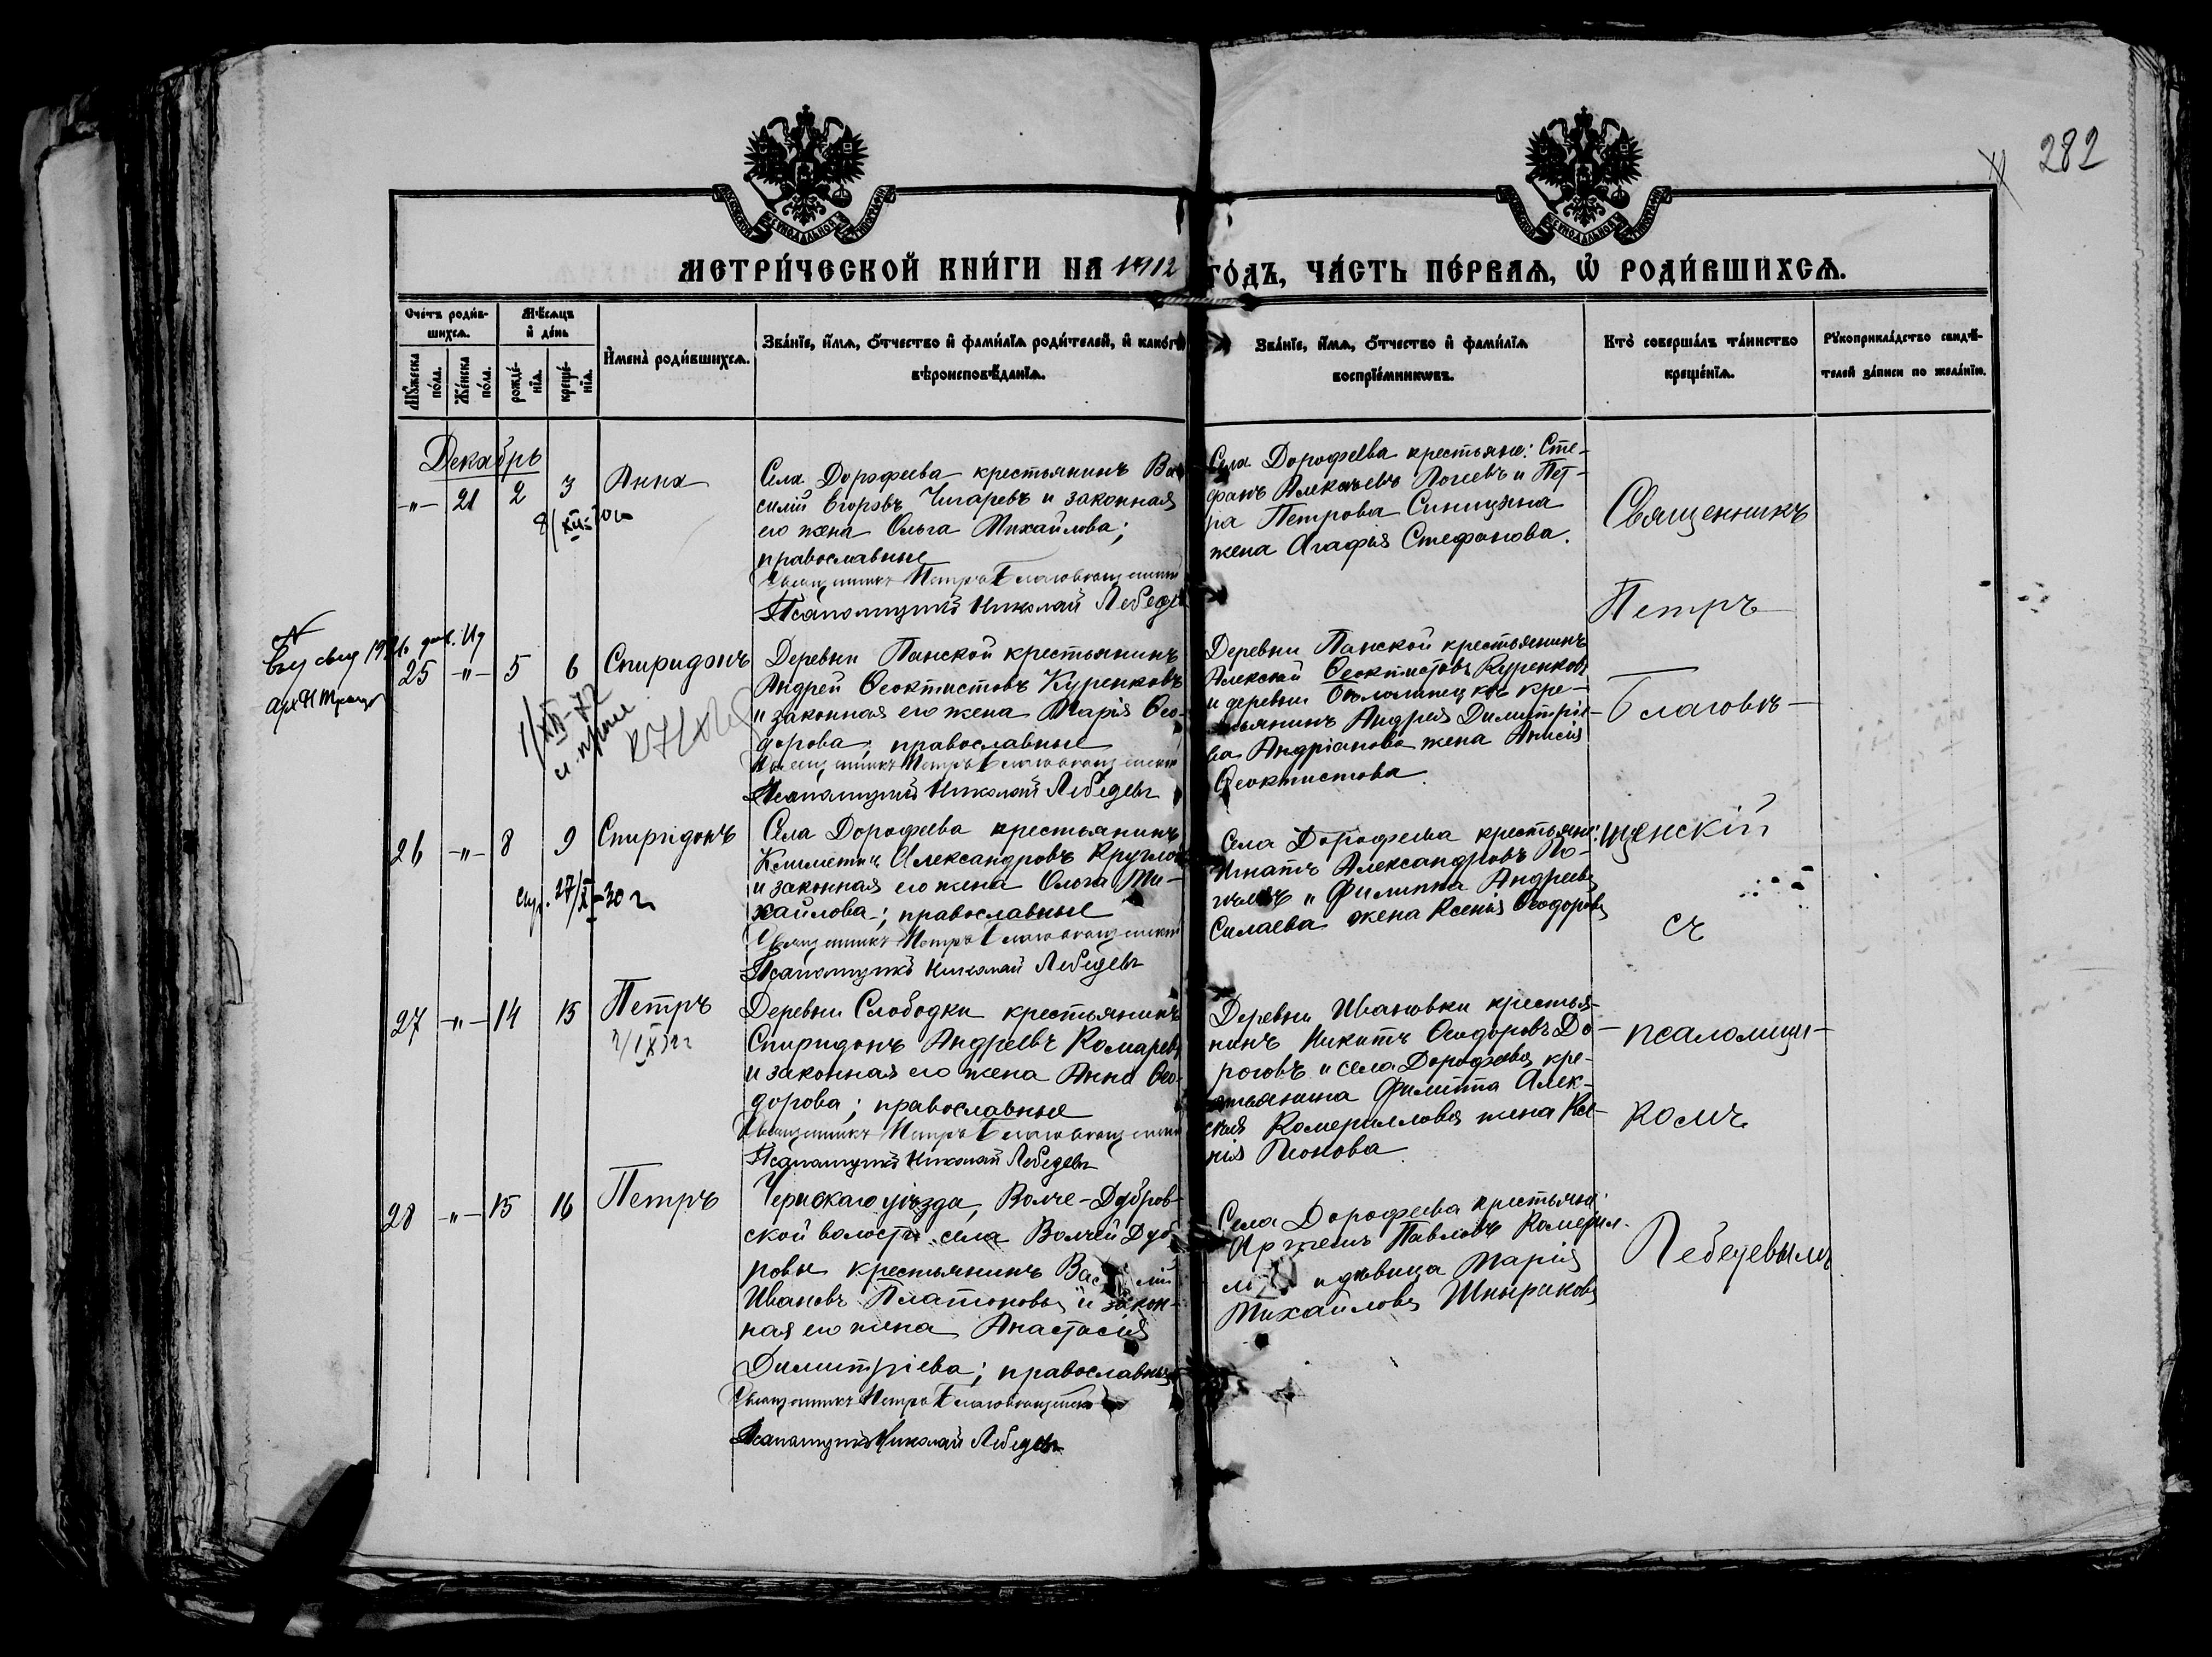 282
МЕТРИ́ЧЕСКОЙ КНИ́ГИ НА 1912 ГО́ДЪ, ЧА́СТЬ ПЕ́РВАЯ, Ѡ҆ РОДИ́ВШИХСЯ.
Сче́тъ роди́в-
шихся.
Мѣ́сяцъ
и҆ де́нь
И҆мена̀ роди́вшихся.
Зва́нїе, и҆́мя, ѻ҆́тчество и҆ фами́лїя роди́телей, и҆ како́гѡ
вѣроисповѣ́данїя.
Зва́нїе, и҆́мя, ѻ҆́тчество и҆ фами́лїя
воспрїе́мникѡвъ.
Кто̀ соверша́лъ та́инство
креще́нїя.
Рꙋкоприкла́дство свидѣ́-
телей за́писи по жела́нїю.
Мꙋ́жеска
по́ла.
Же́нска
по́ла.
рожде́-
нїя.
креще́-
нїя.
Декабрь
-"- 21 2 3 Анна
8/XII-30 г
Села Дорофеева крестьянинъ Ва-
силій Егоровъ Чигаревъ и законная
его жена Ольга Михайлова;
православные
Священникъ Петръ Благовещенский
Псаломщикъ Николай Лебедевъ
Села Дорофеева крестьяне: Сте-
фанъ Алексеевъ Логеевъ и Пет-
ра Петрова Синицына
жена Агафья Стефанова.
25 -"- 5 6 Спиридонъ
Деревни Панской крестьянинъ
Андрей Ѳеоктистовъ Куренковъ
и законная его жена Марія Ѳео-
дорова; православные
Священникъ Петръ Благовещенский
Псаломщикъ Николай Лебедевъ
Деревни Панской крестьянинъ
Алексѣй Ѳеоктистовъ Куренковъ
и деревни кре-
стьянинъ Андрея Димитріе-
ва Андріанова жена Анисія
Ѳеоктистова
26 -"- 8 9 Спиридонъ
27/XI-30 г
Села Дорофеева крестьянинъ
Климентъ Александровъ Круглов
и законная его жена Ольга Ми-
хайлова; православные
Священникъ Петръ Благовещенский
Псаломщикъ Николай Лебедевъ
Села Дорофеева крестьяне:
Игнатъ Александровъ
и Филиппа Андреева
Силаева жена Ксенія Ѳеодорова
27 -"- 14 15 Петръ
Деревни Слободки крестьянинъ
Спиридонъ Андреевъ Комаревъ
и законная его жена Анна Ѳео-
дорова; православные
Священникъ Петръ Благовещенский
Псаломщикъ Николай Лебедевъ
Деревни Ивановки крестья-
нинъ Никитъ Ѳеодоровъ До-
роговъ и села Дорофеева кре-
стьянина Филиппа Алек-
сѣя Камериллова жена Ксе-
нія Леонова
28 -"- 15 16 Петръ
Чернскаго уѣзда, Волче-Дубров-
ской волости, села Волчей Дуб-
ровы крестьянинъ Василій
Ивановъ Платоновъ и закон-
ная его жена Анастасія
Димитріева; православные
Священникъ Петръ Благовещенский
Псаломщикъ Николай Лебедевъ
Села Дорофеева крестьяне:
Артемъ Павловъ Камерил-
и дѣвица Марія
Михайлова Шнырикова
Священникъ
Петръ
Благовѣ-
щенскій
съ
псаломщи-
комъ
Лебедевымъ